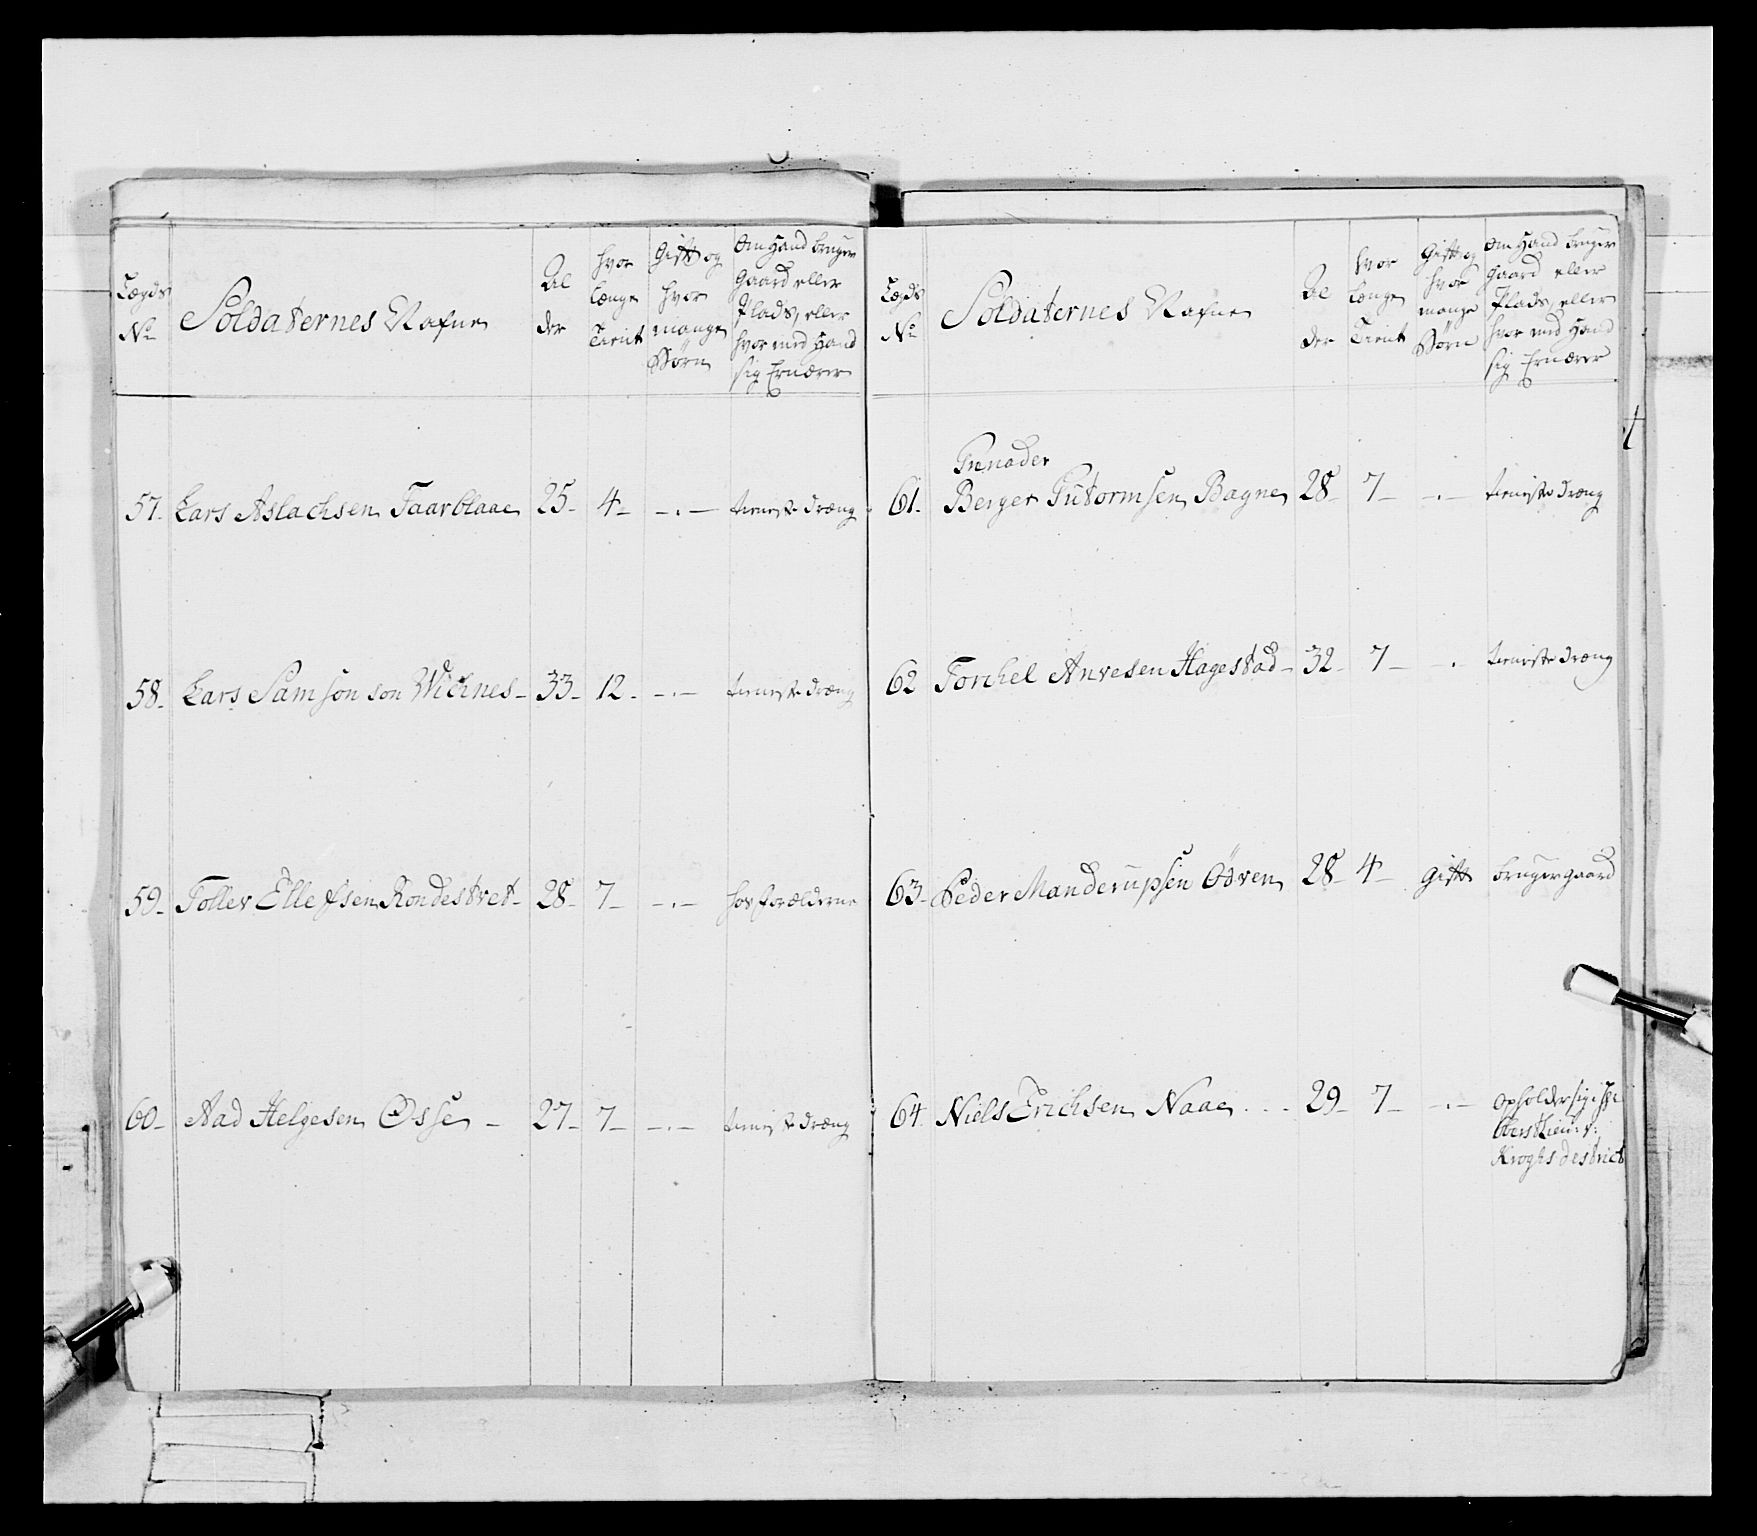 Lægds
No
Soldaternes Nafne
Al
der
hvor
længe
Tient
Gift og
hvor
mange
Børn
Om Hand bruger
Gaard eller
Plads, eller
hvor med Hand
sig Ernærer
57. Lars Aslachsen Faarblaae 25 - 4 - - . - tieneste dræng
58. Lars Samson son Wichnes - 33 - 12 - - . - tieneste dræng
59 - Tollev Ellefsen Rondestvet - 28 - 7 - - . - hos forældrerne
60 - Aad Helgesen Øsse - 27 - 7 - - . - tieneste dræng
Lægds
No
Soldaternes Nafne
Al
der
hvor
længe
Tient
Gift og
hvor
mange
Børn
Om Hand bruger
Gaard eller
Plads, eller
hvor med Hand
sig Ernærer
Grenader
61 - Berger Gutormsen Bagne 28 - 7 - - . - tieneste dræng
62 Torchel Anvesen Hagestad - 32 - 7 - - . tieneste dræng
63 - Peder Manderupsen Ödven 28 - 4 - gift bruger gaard
64 Niels Erichsen Naae . . - 29 - 7 - - . - opholder sig i
Oberstlieu: v:
Kroghs destrict